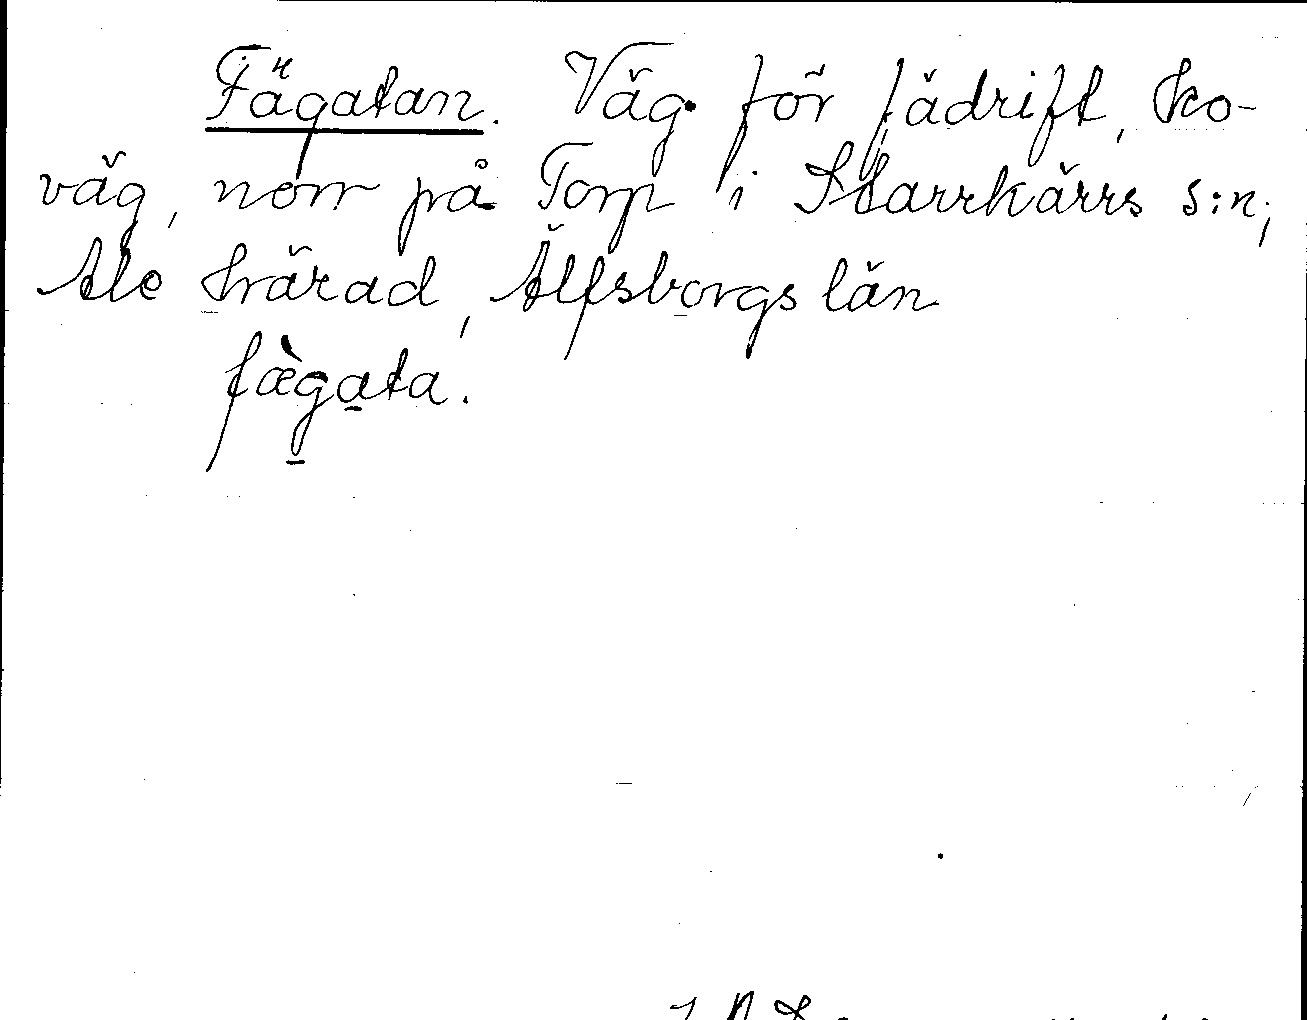 Fägatan. Väg för fädrift, ko-
väg, norr på Torp i Starrkärrs s:n,
Ale härad, Älfsborgs län
fægata.